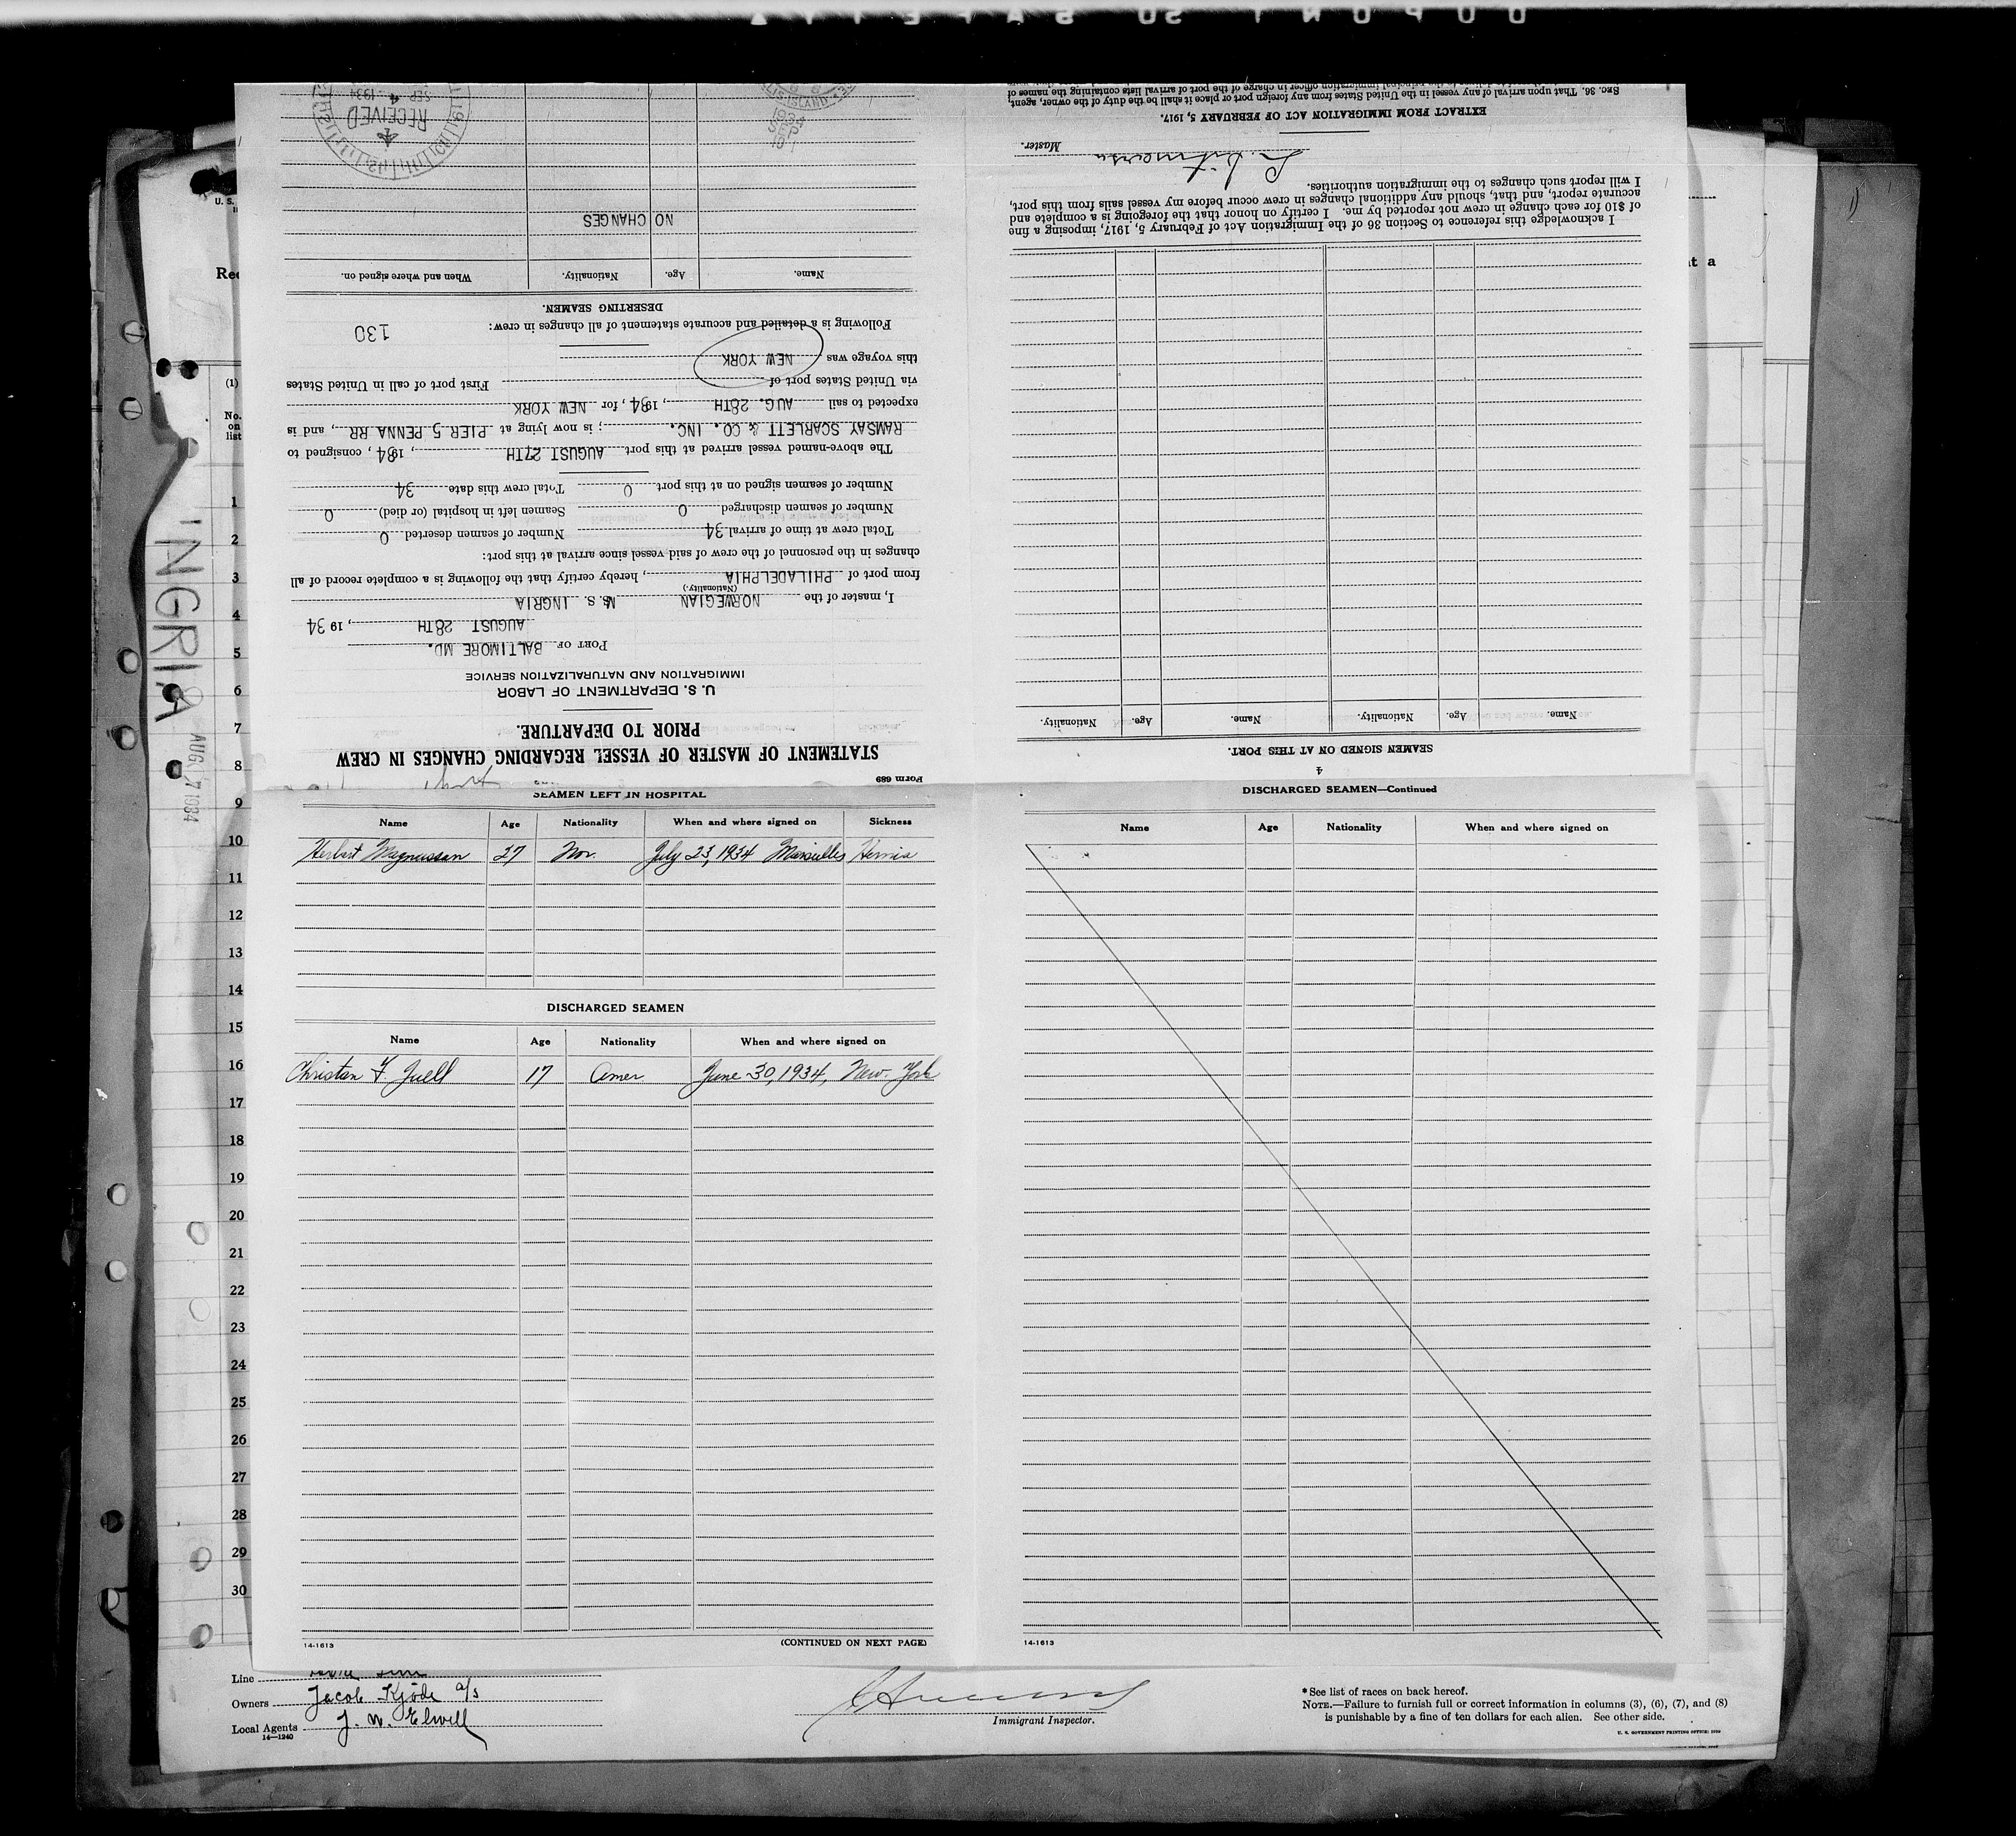 DUPONT SAFETY
U. S.
Rec
at a
(1)
No.
on
list
INGRIA
AUG 17 1934
Form 689
STATEMENT OF MASTER OF VESSEL REGARDING CHANGES IN CREW
PRIOR TO DEPARTURE.
U. S. DEPARTMENT OF LABOR
IMMIGRATION AND NATURALIZATION SERVICE
PORT OF BALTIMORE MD.
AUGUST 28TH, 1934
I, master of the NORWEGIAN M.S. INGRIA
(Nationality.)
from port of PHILADELPHIA, hereby certify that the following is a complete record of all
changes in the personnel of the crew of said vessel since arrival at this port:
Total crew at time of arrival 34 Number of seamen deserted 0
Number of seamen discharged 0 Seamen left in hospital (or died) 0
Number of seamen signed on at this port 0 Total crew this date 34
The above-named vessel arrived at this port AUGUST 27TH, 1934, consigned to
RAMSAY SCARLETT & CO. INC.; is now lying at PIER 5 PENNA RR, and is
expected to sail AUG. 28TH, 1934, for NEW YORK
via United States port of First port of call in United States
this voyage was NEW YORK
Following is a detailed and accurate statement of all changes in crew: 130
DESERTING SEAMEN.
Name. Age. Nationality. When and where signed on.
NO CHANGES
RECEIVED
SEP 4 1934
ELLIS ISLAND
1934
SEP
4
SEAMEN SIGNED ON AT THIS PORT.
Name. Age. Nationality. Name. Age. Nationality.
I acknowledge this reference to Section 36 of the Immigration Act of February 5, 1917, imposing a fine
of $10 for each change in crew not reported by me. I certify on honor that the foregoing is a complete and
accurate report, and that, should any additional changes in crew occur before my vessel sails from this port,
I will report such changes to the immigration authorities.
Master.
EXTRACT FROM IMMIGRATION ACT OF FEBRUARY 5, 1917.
SEC. 36. That upon arrival of any vessel in the United States from any foreign port or place it shall be the duty of the owner, agent,
SEAMEN LEFT IN HOSPITAL
Name Age Nationality When and where signed on Sickness
Herbert Magnussen 27 Nor. July 23, 1934 Marseilles Hernia
DISCHARGED SEAMEN
Name Age Nationality When and where signed on
Christan F. Juell 17 Amer June 30, 1934, New York
14-1613
(CONTINUED ON NEXT PAGE)
DISCHARGED SEAMEN—Continued
Name Age Nationality When and where signed on
14-1613
1
2
3
4
5
6
7
8
9
10
11
12
13
14
15
16
17
18
19
20
21
22
23
24
25
26
27
28
29
30
Line
Owners Jacob Kjøde a/s
Local Agents J. W. Elwell
14—1240
Immigrant Inspector.
*See list of races on back hereof.
NOTE.—Failure to furnish full or correct information in columns (3), (6), (7), and (8)
is punishable by a fine of ten dollars for each alien. See other side.
U. S. GOVERNMENT PRINTING OFFICE